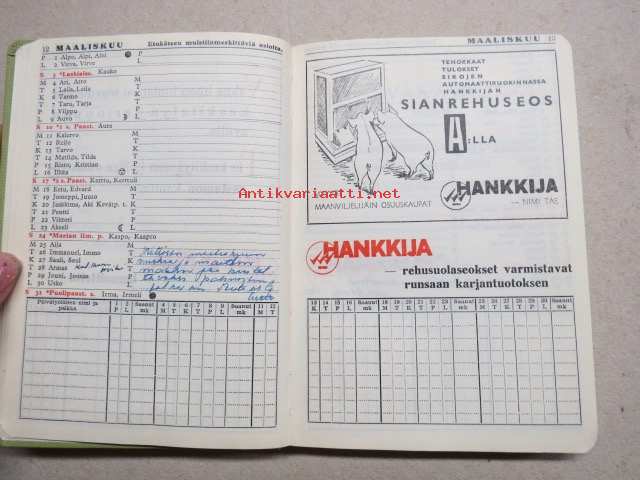 12 MAALISKUU Etukäteen muistiinmerkittäviä asioita.
P 1 Alpo, Alpi, Alvi P
L 2 Virve, Virva L
S 3 *Laskiaiss. Kauko
M 4 Ari, Arro M
T 5 Laila, Leila T
K 6 Tarmo K
T 7 Taru, Tarja T
P 8 Vilppu P
L 9 Auvo L
S 10 *1 s. Paast. Aura
M 11 Kalervo M
T 12 Reijo T
K 13 Tarvo K
T 14 Matilda, Tilda T
P 15 Risto, Kristian P
L 16 Ilkka L
S 17 *2 s. Paast. Kerttu, Kerttuli
M 18 Eetu, Edvard M
T 19 Jooseppi, Juuso T
K 20 Jaakkima, Aki Kevätp. t. K
T 21 Pentti T
P 22 Vihtori P
L 23 Akseli L
S 24 *Marian ilm. p. Kaapo, Kaapro
M 25 Aija M
T 26 Immanuel, Immo T
K 27 Sauli, Saul K
T 28 Armas T
P 29 Juni, Joonas P
L 30 Usko L
S 31 *Puolipaast. s. Irma, Irmeli
Päivätyöläisen nimi ja paikka 1 P 2 L Saanut mk 4 M 5 T 6 K 7 T 8 P 9 L Saanut mk 11 M 12 T
MAALISKUU 13
TEHOKKAAT
TULOKSET
SIKOJEN
AUTOMAATTIRUOKINNASSA
HANKKIJAN
SIANREHUSEOS
A:LLA
MAANVILJELIJÄIN OSUUSKAUPAT
HANKKIJA
— NIMI TAE
Antikvariaatti.net
HANKKIJA
— rehusuolaseokset varmistavat
runsaan karjantuotoksen
13 K 14 T 15 P 16 L Saanut mk 18 M 19 T 20 K 21 T 22 P 23 L Saanut mk 25 M 26 T 27 K 28 T 29 P 30 L Saanut mk